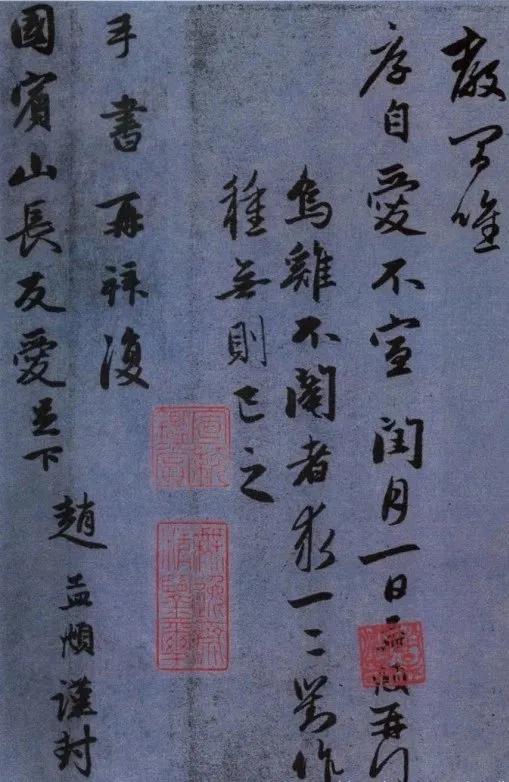 唯
序自愛不宣 閏月一日孟頫再拜
烏雞不閹者求一二對作
種無則已之
手書再拜復
國賓山長友愛足下
趙孟頫謹封